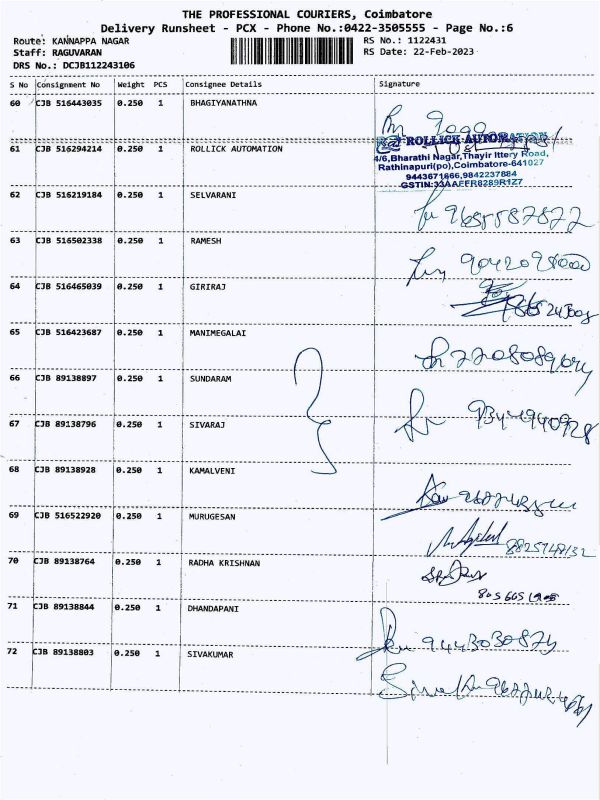 THE PROFESSIONAL COURIERS, Coimbatore
Delivery Runsheet - PCX - Phone No.:0422-3505555 - Page No.:6
Route: KANNAPPA NAGAR
RS No.: 1122431
Staff: RAGUVARAN
RS Date: 22-Feb-2023
DRS No.: DCJB112243106
S No Consignment No Weight PCS Consignee Details Signature
60 CJB 516443035 0.250 1 BHAGIYANATHNA
61 CJB 516294214 0.250 1 ROLLICK AUTOMATION
ROLLICK AUTOMATION
4/6,Bharathi Nagar,Thayir Ittery Road,
Rathinapuri(po),Coimbatore-641027
9443671666,9842237884
GSTIN:33AAFFR8289R1Z7
62 CJB 516219184 0.250 1 SELVARANI
63 CJB 516502338 0.250 1 RAMESH
64 CJB 516465039 0.250 1 GIRIRAJ
65 CJB 516423687 0.250 1 MANIMEGALAI
66 CJB 89138897 0.250 1 SUNDARAM
67 CJB 89138796 0.250 1 SIVARAJ
9344940928
68 CJB 89138928 0.250 1 KAMALVENI
69 CJB 516522920 0.250 1 MURUGESAN
70 CJB 89138764 0.250 1 RADHA KRISHNAN
71 CJB 89138844 0.250 1 DHANDAPANI
72 CJB 89138803 0.250 1 SIVAKUMAR
9443030874